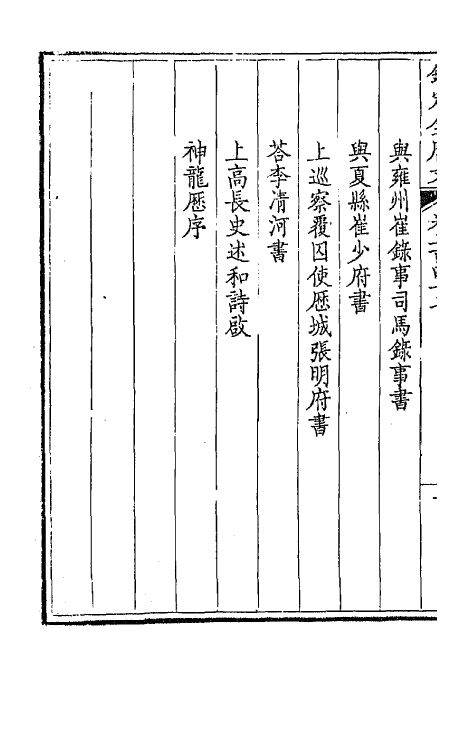 與雍州崔錄事司馬錄事書
與夏縣崔少府書
上巡察覆囚使歷城張明府書
荅李清河書
上高長史述和詩啟
神龍歷序